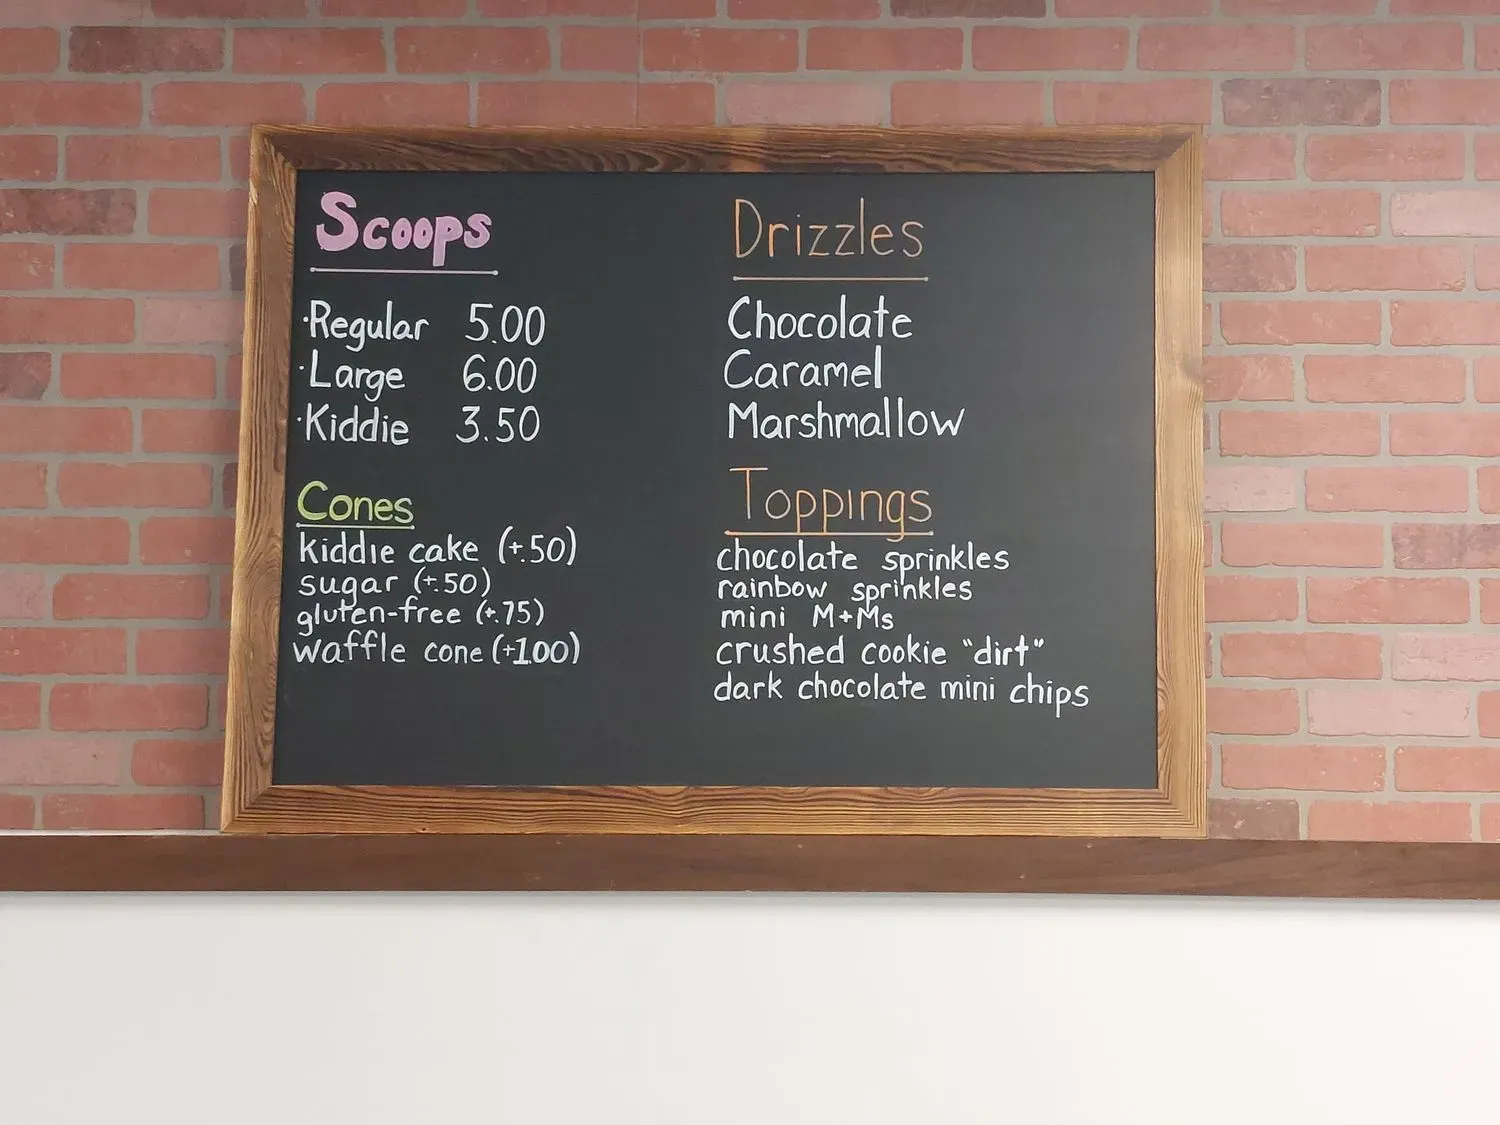 Scoops
·Regular 5.00
·Large 6.00
·Kiddie 3.50
Cones
kiddie cake (+.50)
sugar (+.50)
gluten-free (+.75)
waffle cone (+1.00)
Drizzles
Chocolate
Caramel
Marshmallow
Toppings
chocolate sprinkles
rainbow sprinkles
mini M+Ms
crushed cookie "dirt"
dark chocolate mini chips